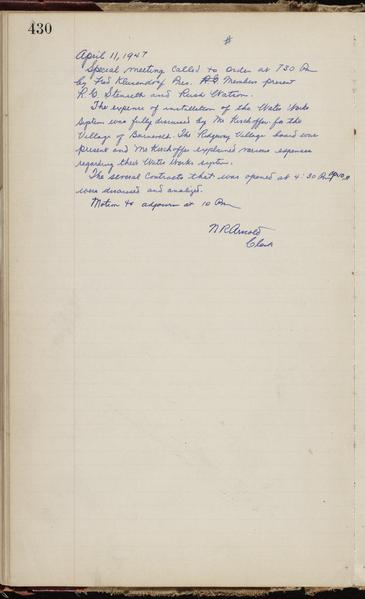 430
#
April 11, 1947
Special meeting called to order at 730 Pm
by Fred Pres. R.G. Members present
R.G. Stenseth and Rush Watson.
The expense of installation of the Water Works
System was fully discussed by Mr Kirchoffer for the
Village of Barneveld. The Ridgeway Village board was
present and Mr Kirchoffer explained various expenses
regarding their Water Works system.
The several Contracts that was opened at 4:30 Pm
were discussed and analyzed.
Motion to adjourn at 10 Pm
N.R. Arnold
Clerk